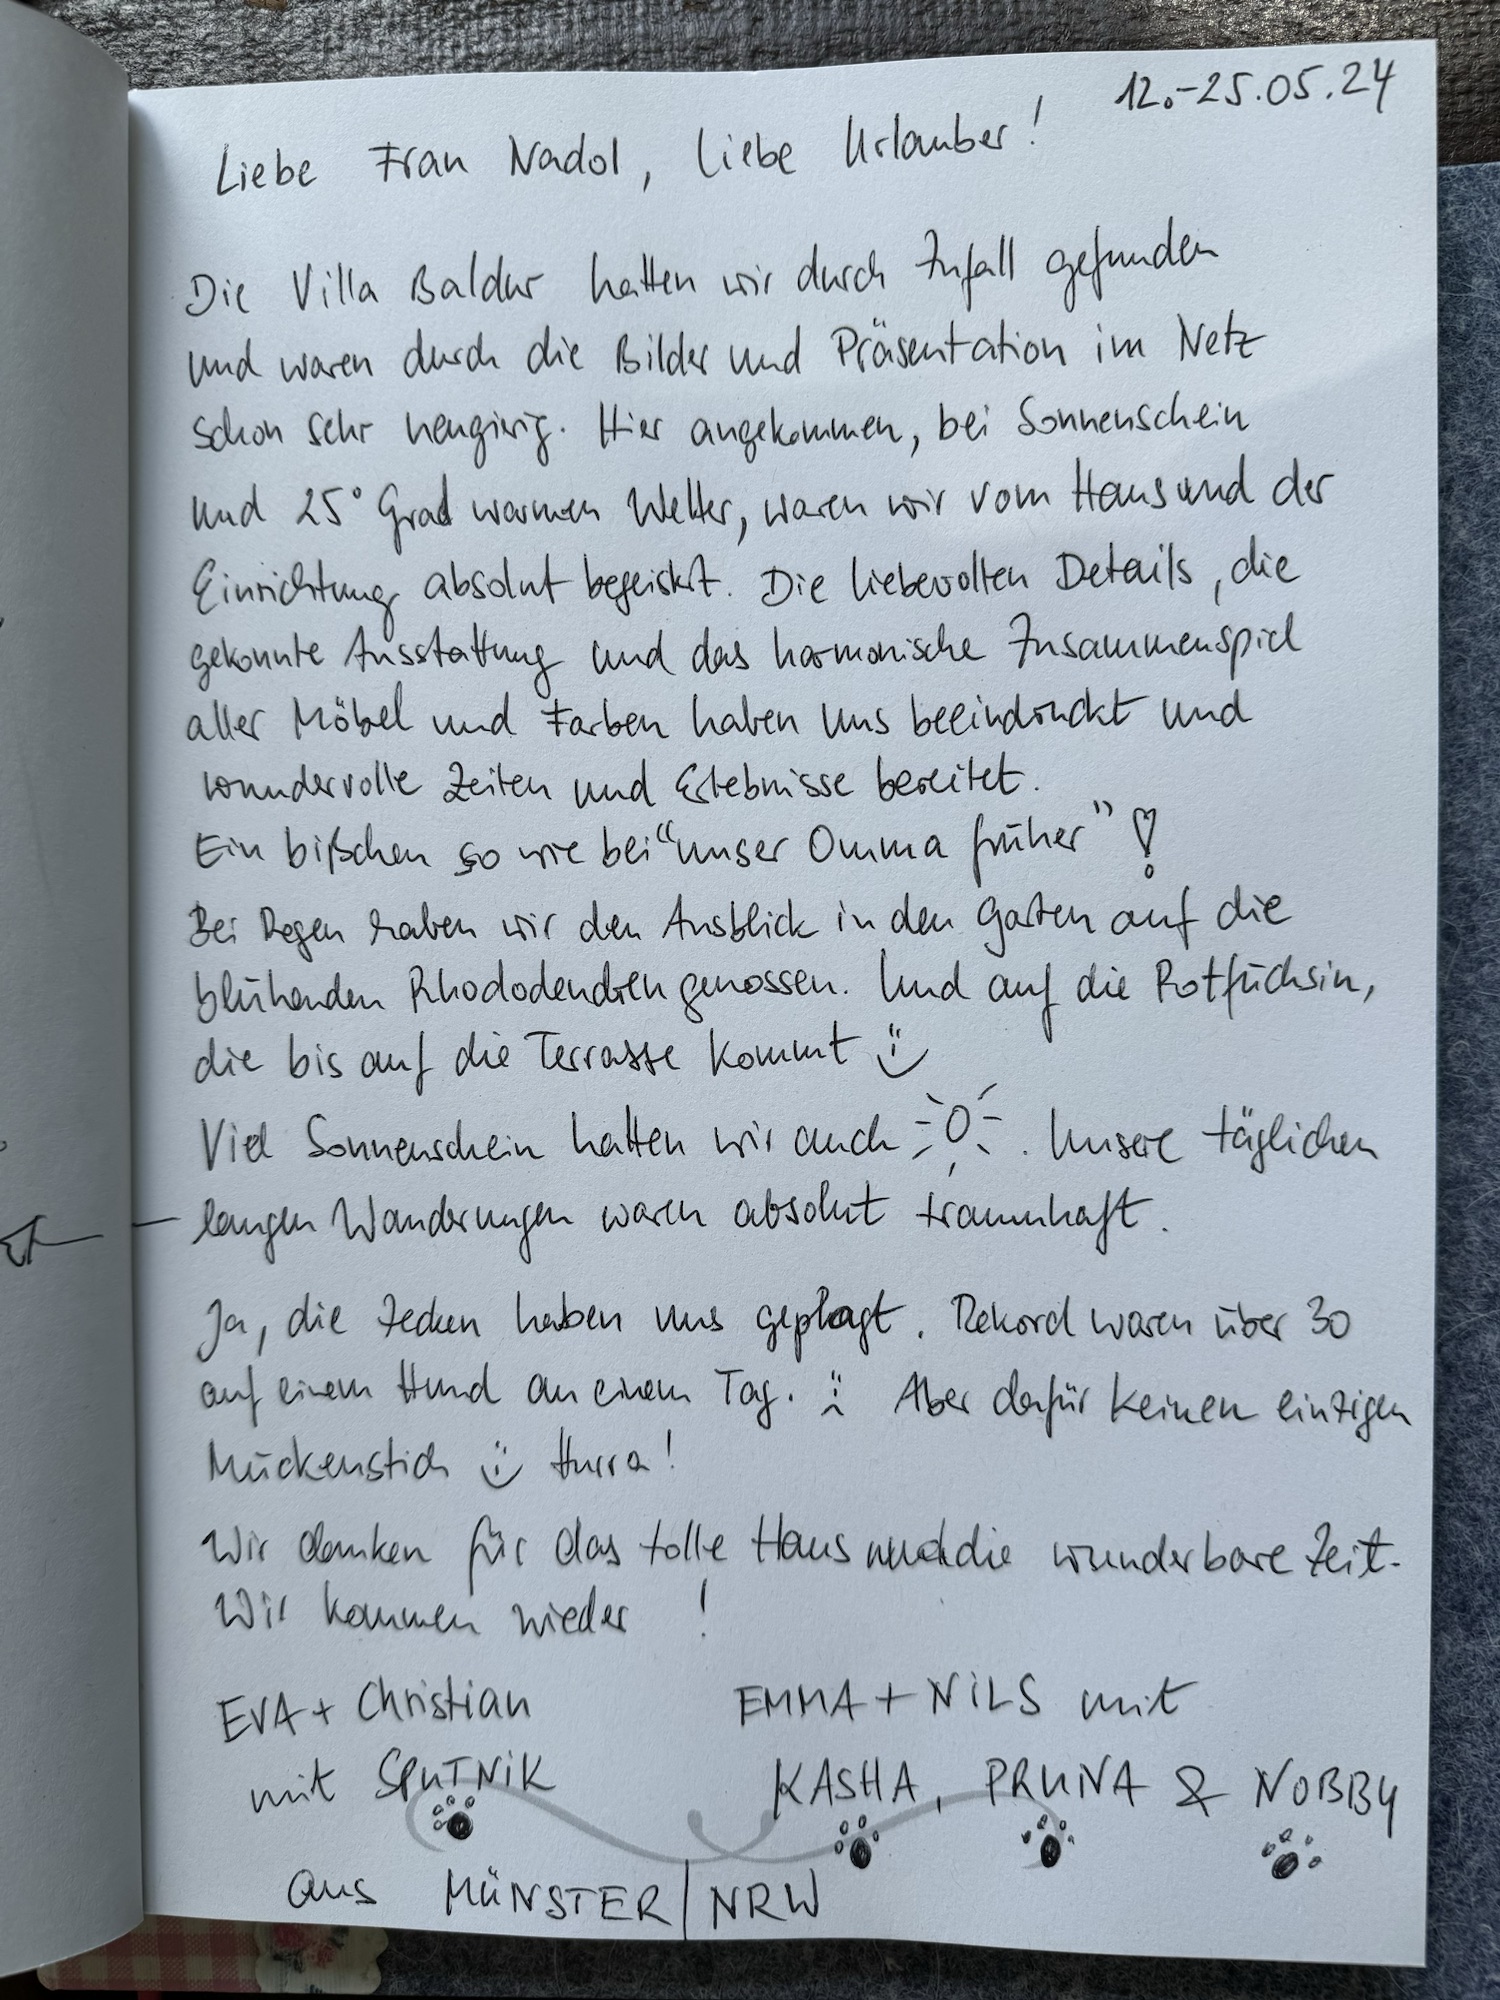 12.-25.05.24
Liebe Frau Nadol, liebe Urlauber!
Die Villa Baldur hatten wir durch Zufall gefunden
und waren durch die Bilder und Präsentation im Netz
schon sehr neugierig. Hier angekommen, bei Sonnenschein
und 25° Grad warmen Wetter, waren wir vom Haus und der
Einrichtung absolut begeistert. Die liebevollen Details, die
gekonnte Ausstattung und das harmonische Zusammenspiel
aller Möbel und Farben haben uns beeindruckt und
wundervolle Zeiten und Erlebnisse bereitet.
Ein bißchen so wie bei "unser Omma früher"!
Bei Regen haben wir den Ausblick in den Garten auf die
blühenden Rhododendren genossen. Und auf die Rotfüchsin,
die bis auf die Terrasse kommt
Viel Sonnenschein hatten wir auch. Unsere täglichen
langen Wanderungen waren absolut traumhaft.
Ja, die Zecken haben uns geplagt. Rekord waren über 30
auf einem Hund an einem Tag. Aber dafür keinen einzigen
Mückenstich Hurra!
Wir danken für das tolle Haus und die wunderbare Zeit.
Wir kommen wieder!
EVA + Christian EMMA + NILS mit
mit SPUTNIK KASHA, PRUNA & NOBBY
aus MÜNSTER/NRW